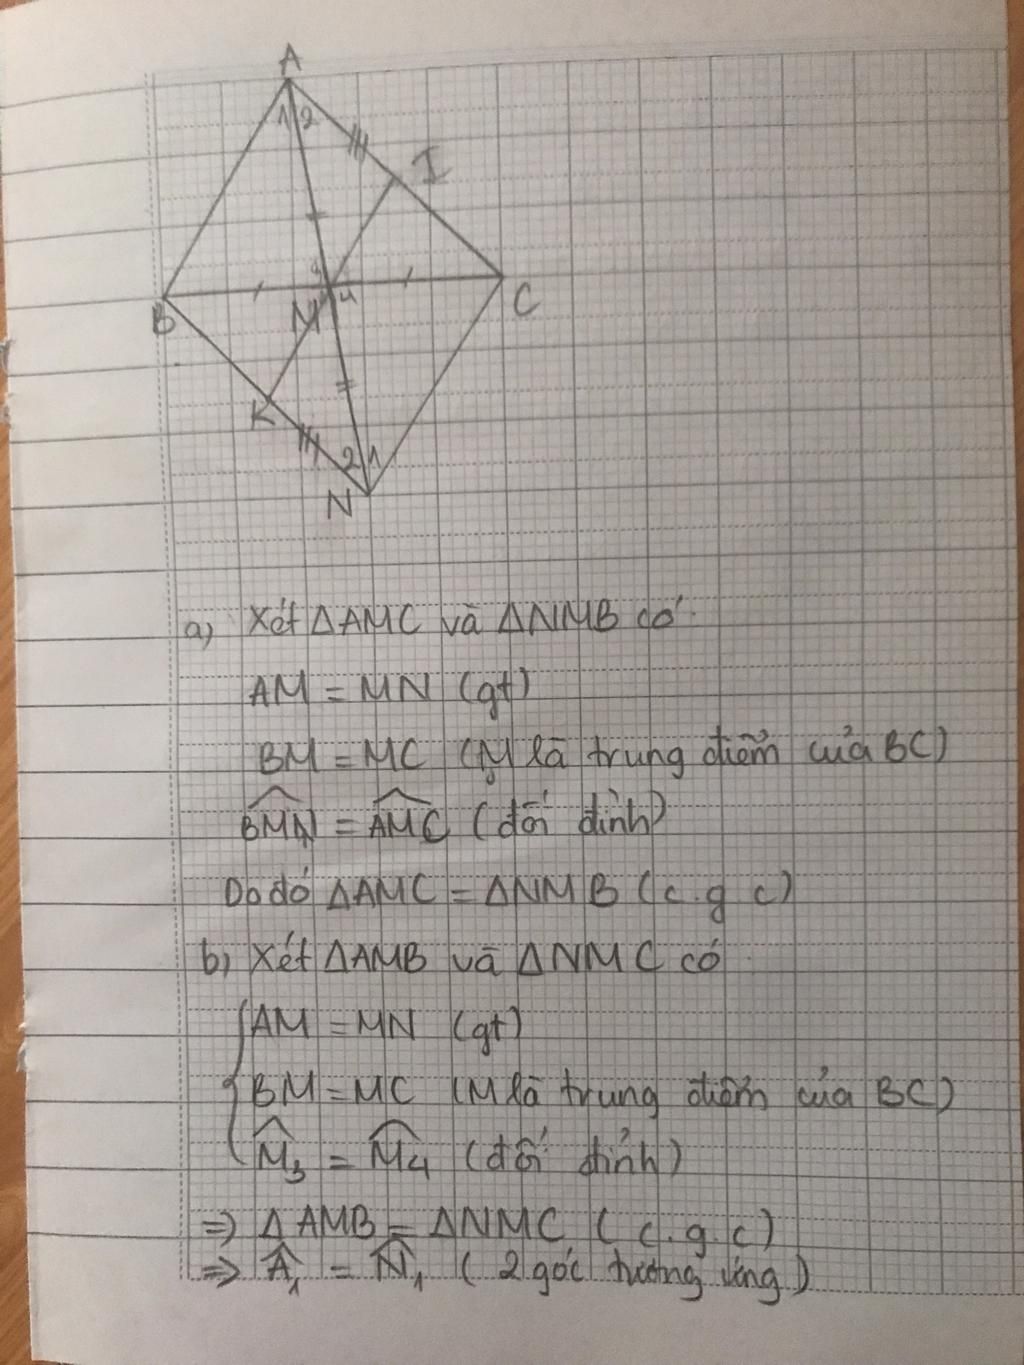 A
1 2
I
3
B
M
4
C
K
2 1
N
a) Xét ΔAMC và ΔNMB có
AM = MN (gt)
BM = MC (M là trung điểm của BC)
\widehat{BMN} = \widehat{AMC} (đối đỉnh)
Do đó ΔAMC = ΔNMB (c.g c)
b) Xét ΔAMB và ΔNMC có
AM = MN (gt)
BM = MC (M là trung điểm của BC)
\widehat{M}₃ = \widehat{M₄} (đối đỉnh)
=> ΔAMB = ΔNMC (c.g.c)
=> \widehat{A}₁ = \widehat{N}₁ (2 góc tương ứng)